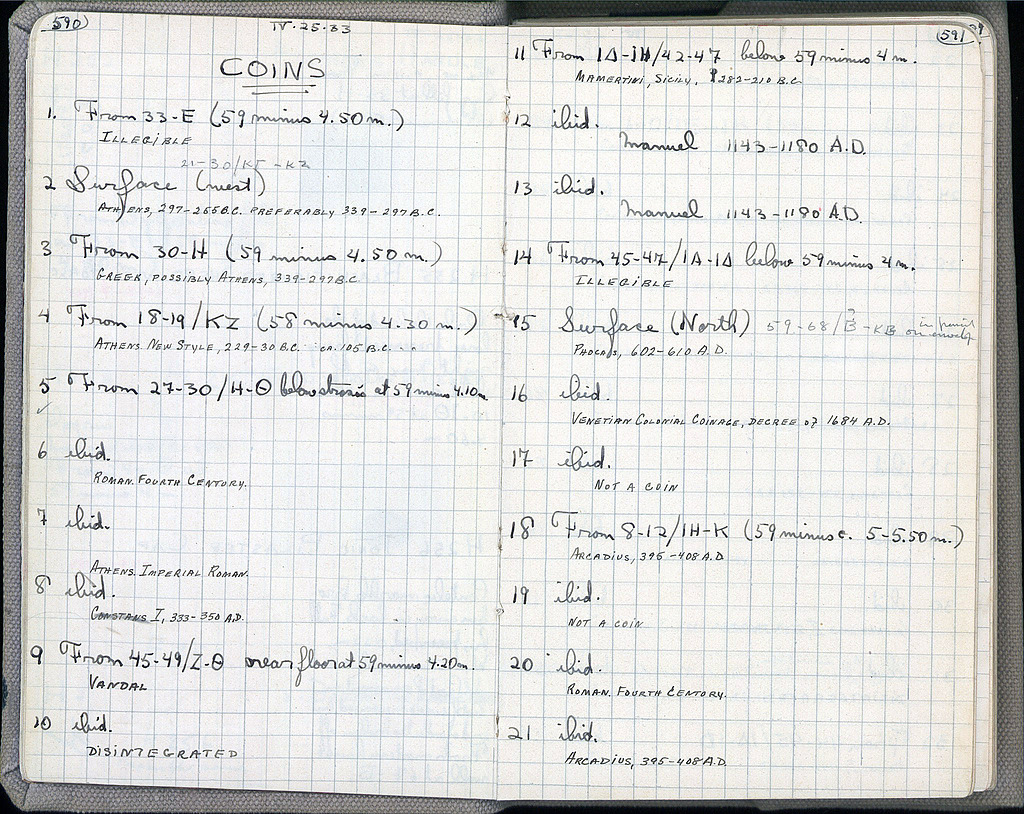 590
IV-25-33
COINS
1. From 33-E (59 minus 4.50 m.)
ILLEGIBLE
21-30/ΚΓ-ΚΖ
2 Surface (west)
ATHENS, 297-255 B.C. PREFERABLY 339-297 B.C.
3 From 30-H (59 minus 4.50 m.)
GREEK, POSSIBLY ATHENS, 339-297 B.C.
4 From 18-19/KZ (58 minus 4.30 m.)
ATHENS NEW STYLE, 229-30 B.C. ca. 105 B.C.
5 From 27-30/H-Θ below at 59 minus 4.10 m.
✓
6 ibid.
ROMAN. FOURTH CENTURY.
7 ibid.
ATHENS. IMPERIAL ROMAN.
8 ibid.
CONSTANS I, 333-350 A.D.
9 From 45-49/Z-Θ near floor at 59 minus 4.20 m.
VANDAL
10 ibid.
DISINTEGRATED
591
11 From ΙΔ-ΙΗ/42-47 below 59 minus 4 m.
MAMERTINI, SICILY, 282-210 B.C.
12 ibid.
Manuel 1143-1180 A.D.
13 ibid.
Manuel 1143-1180 A.D.
14 From 45-47/ΙΑ-ΙΔ below 59 minus 4 m.
ILLEGIBLE
15 Surface (North) 59-68/B-KB in pencil on envelop
PHOCAS, 602-610 A.D.
16 ibid.
VENETIAN COLONIAL COINAGE, DECREE OF 1684 A.D.
17 ibid.
NOT A COIN
18 From 8-12/ΙΗ-Κ (59 minus c. 5-5.50 m.)
ARCADIUS, 395-408 A.D
19 ibid.
NOT A COIN
20 ibid.
ROMAN. FOURTH CENTURY.
21 ibid.
ARCADIUS, 395-408 A.D.